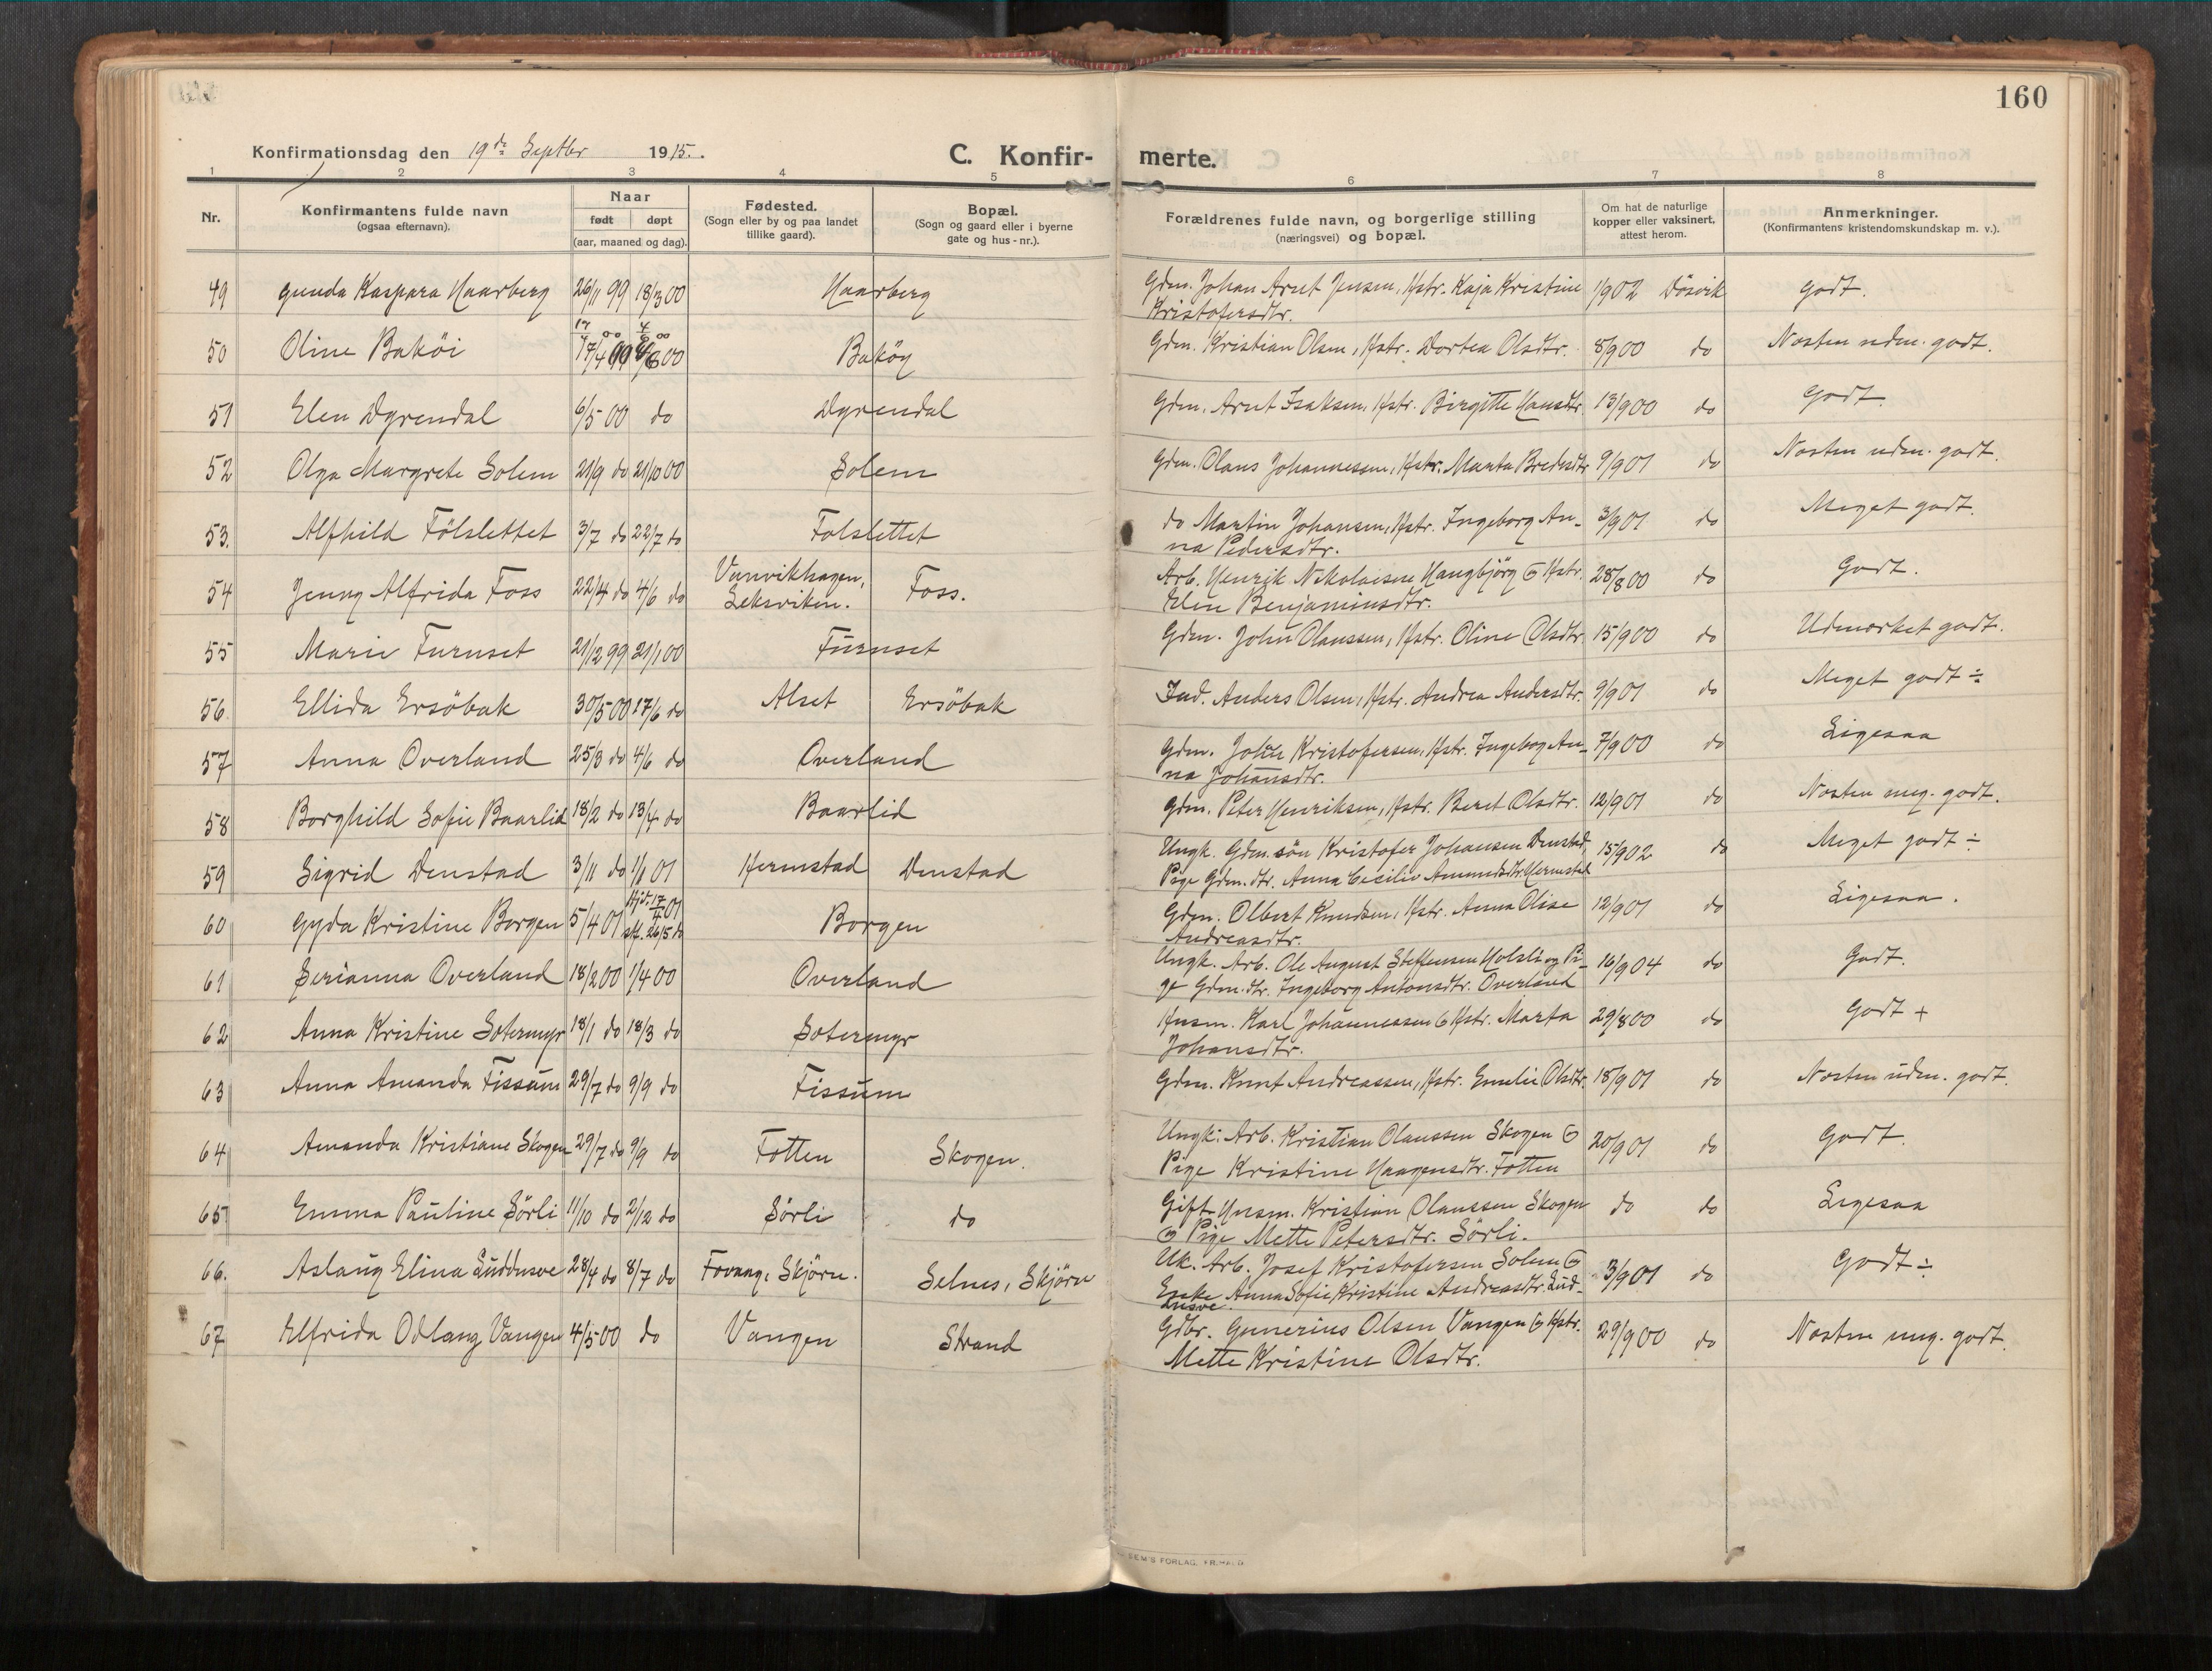 160
Konfirmationsdag den 19de Septbr 1915.
C. Konfir- merte.
1 2 3 4 5 6 7 8
Nr.
Konfirmantens fulde navn
(ogsaa efternavn).
Naar
født døpt
(aar, maaned og dag).
Fødested.
(Sogn eller by og paa landet
tillike gaard).
Bopæl.
(Sogn og gaard eller i byerne
gate og hus-nr.).
Forældrenes fulde navn, og borgerlige stilling
(næringsvei) og bopæl.
Om hat de naturlige
kopper eller vaksinert,
attest herom.
Anmerkninger.
(Konfirmantens kristendomskundskap m. v.).
49 Gunda Kaspara Haarberg 26/11 99 18/3 00 Haarberg Gdm. Johan Arnt Jensen, Hstr. Kaja Kristine 1/902 Dösvik Godt.
Kristofersdtr.
50 Oline Baköi 17/4 00 4/6 00 Baköy Gdm. Kristian Olsen, Hstr. Dortea Olsdtr. 8/900 do Næsten udm. godt.
51 Elen Dyrendal 6/5 00 do Dyrendal Gdm. Arnt Isaksen, Hstr. Birgitte Hansdtr. 13/900 do Godt.
52 Olga Margrete Solem 21/9 do 21/10 00 Solem Gdm. Olaus Johannessen, Hstr. Marta Bredsdtr 9/901 do Næsten udm. godt.
53. Alfhild Fölslettet 3/7 do 22/7 do Folslettet do Martin Johansen, Hstr. Ingeborg An- 3/901 do Meget godt.
na Pedersdtr.
54 Jenny Alfrida Foss 22/4 do 4/6 do Vanvikhagen, Foss. Arb. Henrik Nikolaisen Hangbjörg & Hstr. 28/8 00 do Godt.
Leksviken. Elen Benjaminsdtr.
55 Marie Furuset 21/12 99 21/1 00 Furuset Gdm. John Olaussen, Hstr. Oline Olsdtr 15/900 do Udmerket godt.
56. Ellida Ersöbak 30/5 00 17/6 do Alset Ersöbak Ind. Anders Olsen, Hstr. Andrea Andersdtr. 9/901 do Meget godt ÷
57 Anna Overland 25/3 do 4/6 do Overland Gdm. Johan Kristofersen, Hstr. Ingeborg An- 7/900 do Ligesaa
na Johansdtr.
58 Borghild Sofie Baarlid 18/2 do 13/4 do Baarlid Gdm. Peter Henriksen, Hstr. Beret Olsdtr. 12/901 do Næsten meg. godt.
59 Sigrid Denstad 3/11 do 1/1 01 Hermstad Denstad Ungk. Gdm. sön Kristofer Johansen Denstad, 15/902 do Meget godt ÷
Pige Gdm. dtr. Anna Cecilie Amundsdtr. Hermstad
60 Gyda Kristine Borgen 5/4 01 Hjd. 17/4 01 Borgen Gdm. Olbert Knudsen, Hstr. Anna Olise 12/901 do Ligesaa.
stf. 26/5 do Andreasdtr.
61 Serianna Overland 18/2 00 1/4 00 Overland Ungk. Arb. Ole August Steffensen Holsli og Pi- 16/904 do Godt.
ge Gdm. dtr. Ingeborg Antonsdtr. Overland
62 Anna Kristine Sotermyr 18/1 do 18/3 do Sotermyr Husm. Karl Johannessen & Hstr. Marta 29/8 00 do Godt +
Johansdtr.
63 Anna Amanda Fissum 29/7 do 9/9 do Fissum Gdm. Knut Andreassen, Hstr. Emelie Olsdtr. 18/901 do Næsten udm. godt.
64 Amanda Kristiane Skogen 29/7 do 9/9 do Fotten Skogen. Ungk. Arb. Kristian Olaussen Skogen & 20/901 do Godt.
Pige Kristine Haagensdtr. Fotten
65 Emma Pauline Sörli 11/10 do 2/12 do Sörli do Gift Husm. Kristian Olaussen Skogen do do Ligesaa
& Pige Mette Petersdtr. Sörli.
66. Aslaug Elina Luddusve 28/4 do 8/7 do Fovang, Skjörn. Selnes, Skjörn Uk. Arb. Josef Kristofersen Solem & 3/901 do Godt ÷
Enke Anna Sofie Kristine Andreasdtr. Lud-
dusve.
67 Elfrida Odlaug Vangen 4/5 00 do Vangen Strand Gdbr. Gunerius Olsen Vangen & Hstr. 29/900 do Næsten meg. godt.
Mette Kristine Olsdtr.
SEM'S FORLAG, FR.HALD